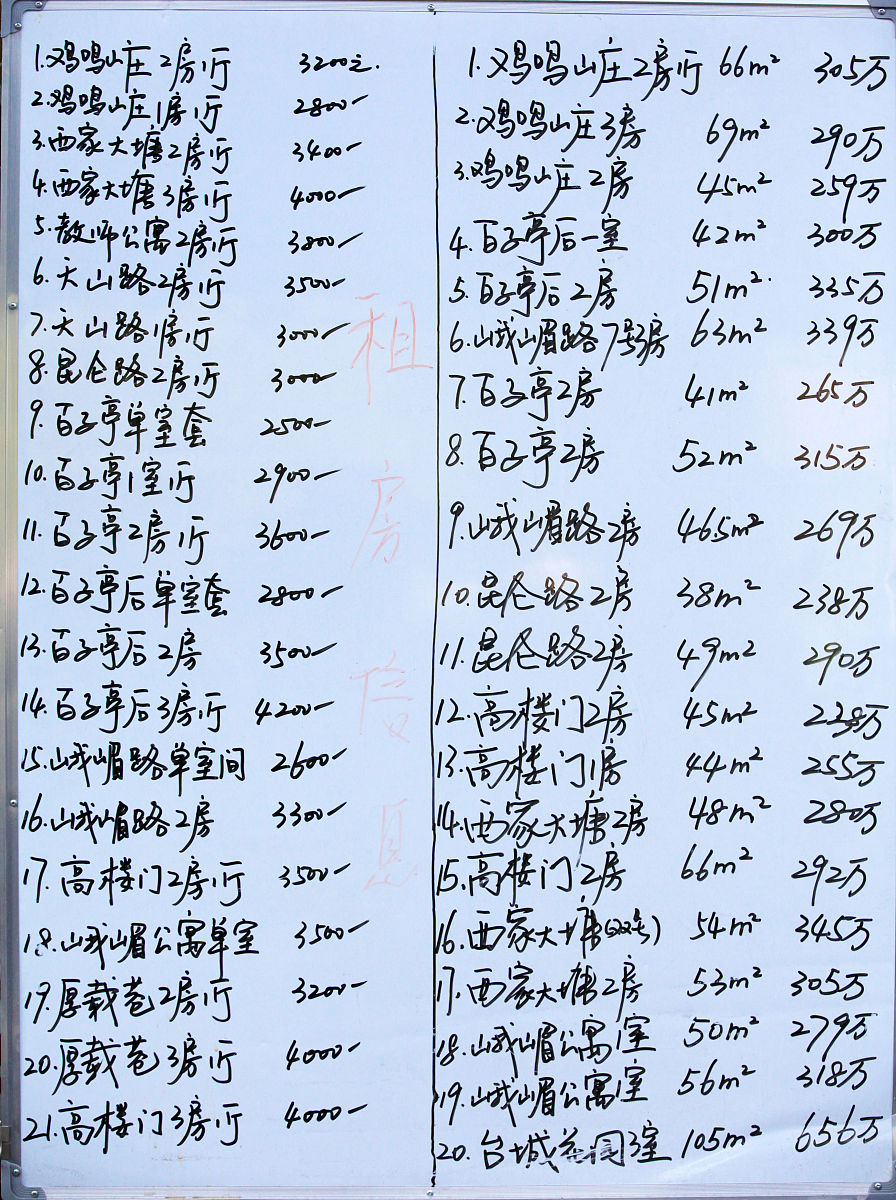 1.鸡鸣山庄2房1厅 3200元.
2.鸡鸣山庄1房1厅 2800-
3.西家大塘2房1厅 3400-
4.西家大塘3房1厅 4000-
5.教师公寓2房1厅 3800-
6.天山路2房1厅 3500-
7.天山路1房1厅 3000-
8.昆仑路2房1厅 3000-
9.百子亭单室套 2500-
10.百子亭1室1厅 2900-
11.百子亭2房1厅 3600-
12.百子亭后单室套 2800-
13.百子亭后2房 3500-
14.百子亭后3房1厅 4200-
15.峨嵋路单室间 2600-
16.峨嵋路2房 3300-
17.高楼门2房1厅 3500-
18.峨嵋公寓单室 3500-
19.厚载巷2房1厅 3200-
20.厚载巷3房1厅 4000-
21.高楼门3房1厅 4000-
租房信息
1.鸡鸣山庄2房1厅 66m² 305万
2.鸡鸣山庄3房 69m² 290万
3.鸡鸣山庄2房 45m² 259万
4.百子亭后一室 42m² 300万
5.百子亭后2房 51m² 335万
6.峨嵋路7号3房 63m² 339万
7.百子亭2房 41m² 265万
8.百子亭2房 52m² 315万
9.峨嵋路2房 46.5m² 269万
10.昆仑路2房 38m² 238万
11.昆仑路2房 49m² 290万
12.高楼门2房 45m²
13.高楼门1房 44m² 255万
14.西家大塘2房 48m² 280万
15.高楼门2房 66m² 292万
16.西家大塘(双号) 54m² 345万
17.西家大塘2房 53m² 305万
18.峨嵋公寓1室 50m² 279万
19.峨嵋公寓1室 56m² 318万
20.台城花园3室 105m² 656万